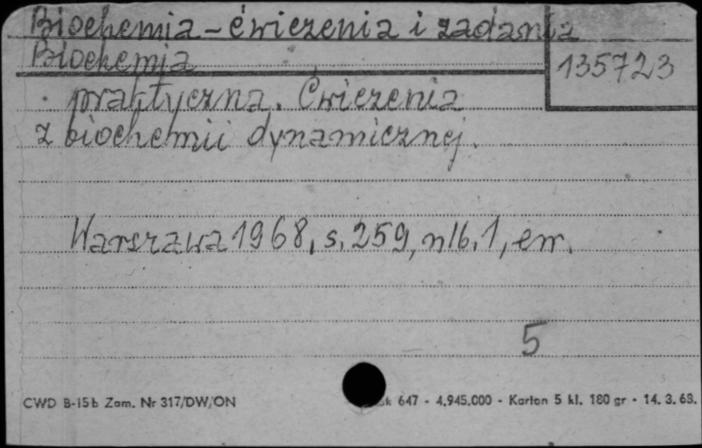 Biochemia - ćwiczenia i zadania
Biochemia
135723
praktyczna. Ćwiczenia
z biochemii dynamicznej.
Warszawa 1968, s. 259, nlb. 1, err.
5
CWD B-15b Zam. Nr 317/DW/ON
647 - 4.945.000 - Karton 5 kl. 180 gr - 14. 3. 68.